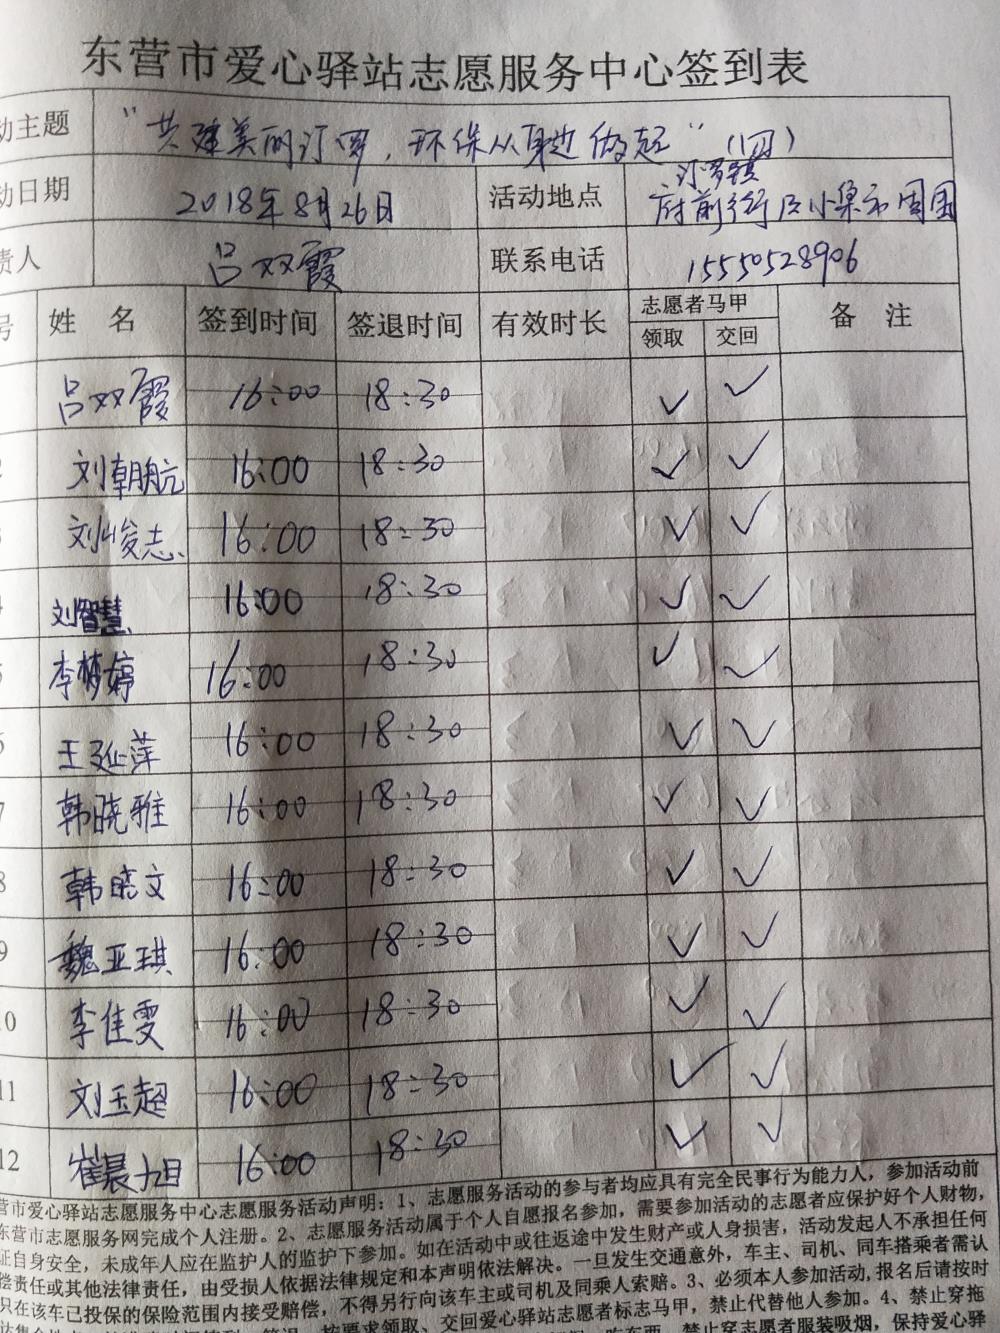 东营市爱心驿站志愿服务中心签到表
动主题 “共建美丽汀罗，环保从身边做起”
动日期 2018年8月26日 活动地点 汀罗镇府前街及小集市周围
责人 吕双霞 联系电话 15550528906
号 姓 名 签到时间 签退时间 有效时长 志愿者马甲 备 注
领取 交回
吕双霞 16:00 18:30 ✓ ✓
2 刘朝航 16:00 18:30 ✓ ✓
3 刘峻志 16:00 18:30 ✓ ✓
4 刘智慧 16:00 18:30 ✓ ✓
5 李梦婷 16:00 18:30 ✓ ✓
6 王延萍 16:00 18:30 ✓ ✓
7 韩晓雅 16:00 18:30 ✓ ✓
8 韩晓文 16:00 18:30 ✓ ✓
9 魏亚琪 16:00 18:30 ✓ ✓
10 李佳雯 16:00 18:30 ✓ ✓
11 刘玉超 16:00 18:30 ✓ ✓
12 崔晨旭 16:00 18:30 ✓ ✓
营市爱心驿站志愿服务中心志愿服务活动声明：1、志愿服务活动的参与者均应具有完全民事行为能力人，参加活动前
东营市志愿服务网完成个人注册。2、志愿服务活动属于个人自愿报名参加，需要参加活动的志愿者应保护好个人财物，
证自身安全，未成年人应在监护人的监护下参加。如在活动中或往返途中发生财产或人身损害，活动发起人不承担任何
偿责任或其他法律责任，由受损人依据法律规定和本声明依法解决。一旦发生交通意外，车主、司机、同车搭乘者需认
只在该车已投保的保险范围内接受赔偿，不得另行向该车主或司机及同乘人索赔。3、必须本人参加活动,报名后请按时
按要求领取、交回爱心驿站志愿者标志马甲，禁止代替他人参加。4、禁止穿拖
禁止穿志愿者服装吸烟，保持爱心驿